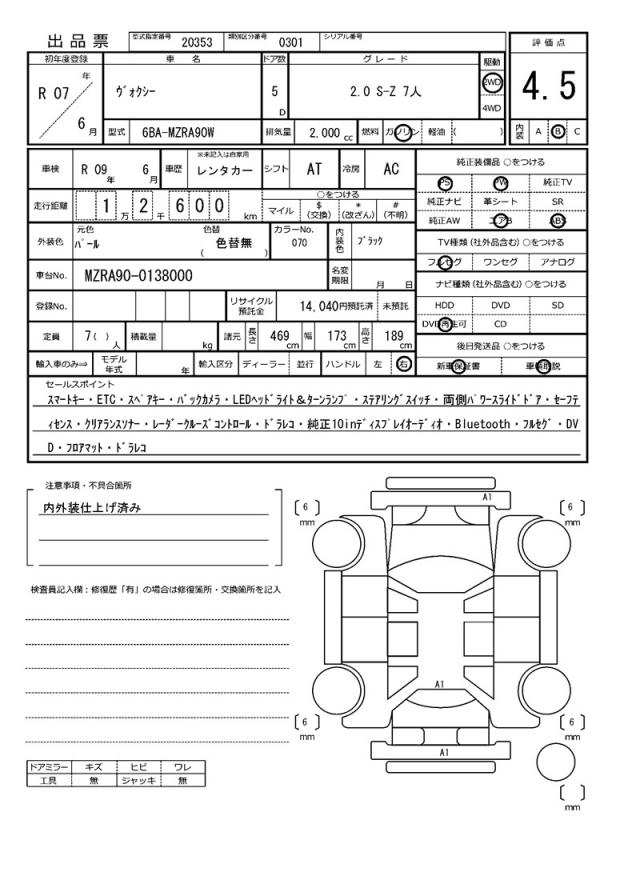 出品票 型式指定番号 20353 類別区分番号 0301 シリアル番号
評価点
4.5
内装 A B C
初年度登録 車名 ドア数 グレード 駆動
R 07 年 6 月 ヴォクシー 5 D 2.0 S-Z 7人 2WD 4WD
型式 6BA-MZRA90W 排気量 2,000 cc 燃料 ガソリン 軽油 ( )
車検 R 09 年 6 月 車歴 ※未記入は自家用 レンタカー シフト AT 冷房 AC
走行距離 1 万 2 千 6 0 0 km ○をつける
マイル $ (交換) * (改ざん) # (不明)
外装色 元色 パール 色替 色替無 ( ) カラーNo. 070 内装色 ブラック
車台No. MZRA90-0138000 名変期限 月 日
登録No. リサイクル預託金 14,040円預託済 未預託
定員 7( ) 人 積載量 kg 諸元 長さ 469 cm 幅 173 cm 高さ 189 cm
輸入車のみ⇒ モデル年式 年 輸入区分 ディーラー 並行 ハンドル 左 右
純正装備品 ○をつける
PS PW 純正TV
純正ナビ 革シート SR
純正AW エアB ABS
TV種類(社外品含む) ○をつける
フルセグ ワンセグ アナログ
ナビ種類(社外品含む) ○をつける
HDD DVD SD
DVD再生可 CD
後日発送品 ○をつける
新車保証書 車輌取説
セールスポイント
スマートキー・ETC・スペアキー・バックカメラ・LEDヘッドライト&ターンランプ・ステアリングスイッチ・両側パワースライドドア・セーフテ
ィセンス・クリアランスソナー・レーダークルーズコントロール・ドラレコ・純正10inディスプレイオーディオ・Bluetooth・フルセグ・DV
D・フロアマット・ドラレコ
注意事項・不具合箇所
内外装仕上げ済み
検査員記入欄:修復歴「有」の場合は修復箇所・交換箇所を記入
ドアミラー キズ ヒビ ワレ
工具 無 ジャッキ 無
A1
6 mm
6 mm
A1
6 mm
6 mm
A1
mm